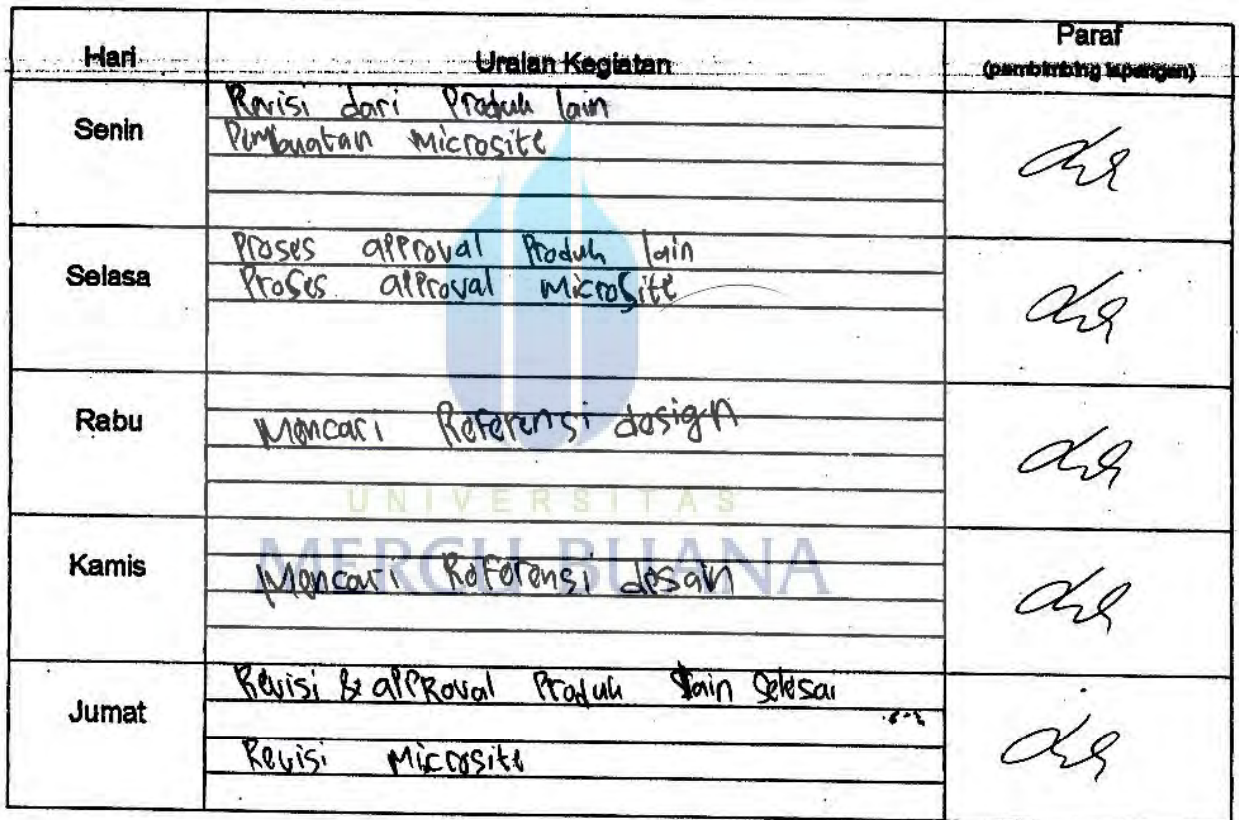 Hari
Uraian Kegiatan
Paraf
(pembimbing lapangan)
Senin
Revisi dari Produk lain
Pembuatan Microsite
Selasa
Proses approval Produk lain
Proses approval Microsite
Rabu
Mencari Referensi design
UNIVERSITAS
MERCU BUANA
Kamis
Mencari Referensi desain
Jumat
Revisi & appRoval Produk lain Selesai
Revisi Microsite